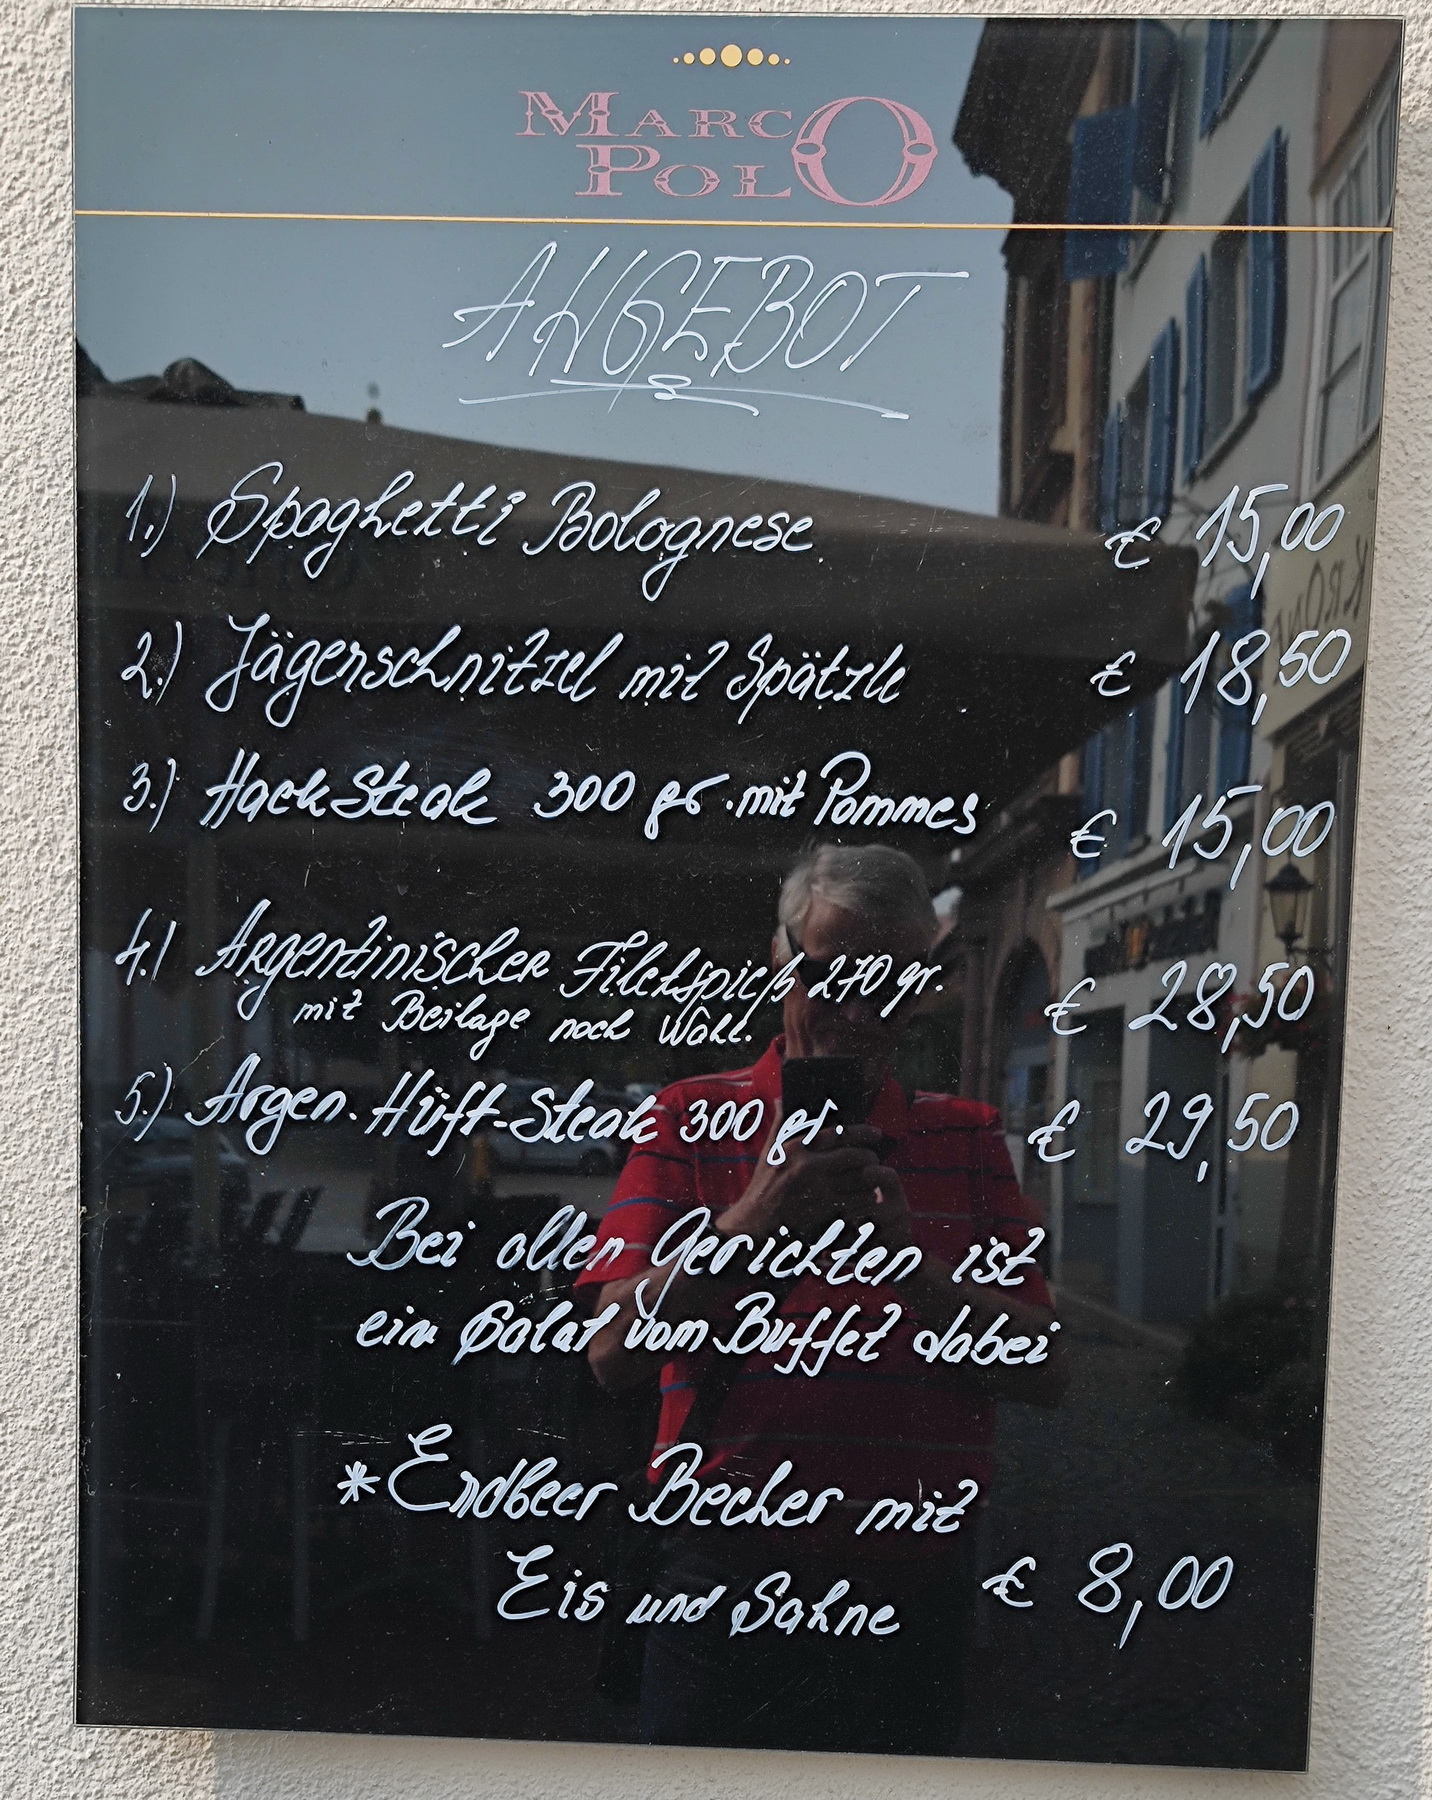 MARCO
POLO
ANGEBOT
1.) Spaghetti Bolognese € 15,00
2.) Jägerschnitzel mit Spätzle € 18,50
3.) Hack Steak 300 gr. mit Pommes € 15,00
4.) Argentinischer Filetspieß 270 gr. € 28,50
mit Beilage nach Wahl.
5.) Argen. Hüft-Steak 300 gr. € 29,50
Bei allen Gerichten ist
ein Salat vom Buffet dabei
*Erdbeer Becher mit
Eis und Sahne € 8,00
KRONE